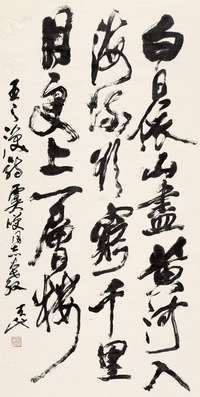 白日依山盡黄河入
海流欲窮千里
目更上一層樓
王之渙詩 同志